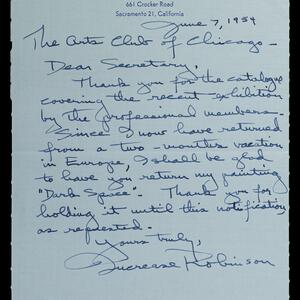 661 Crocker Road
Sacramento 21, California
June 7, 1954
The Arts Club of Chicago -
Dear Secretary,
Thank you for the catalogue
covering the recent exhibition
by the professional members.
Since I now have returned
from a two-months vacation
in Europe, I shall be glad
to have you return my painting
"Dark Spice". Thank you for
holding it until this notification
as requested.
Yours truly,
Increase Robinson